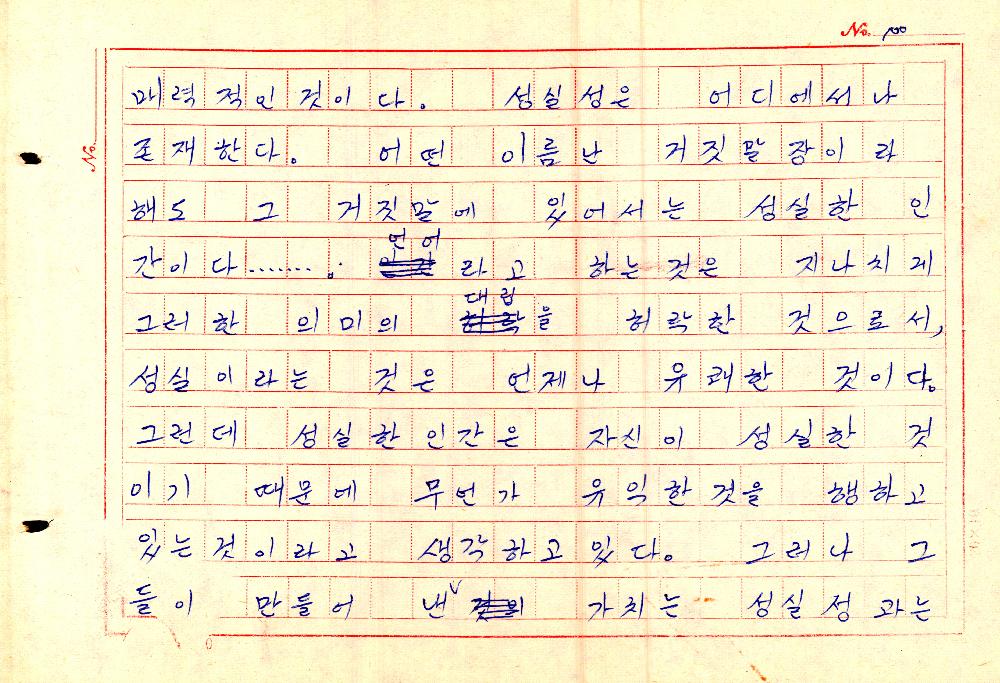 No. 100
No.
매력적인 것이다. 성실성은 어디에서나
존재한다. 어떤 이름난 거짓말장이라
해도 그 거짓말에 있어서는 성실한 인
간이다....... 언어라고 하는것은 지나치게
그러한 의미의 대립을 허락한 것으로서,
성실이라는 것은 언제나 유쾌한 것이다.
그런데 성실한인간은 자신이 성실한 것
이기 때문에 무언가 유익한것을 행하고
있는것이라고 생각하고있다. 그러나 그
들이 만들어 낸 가치는 성실정과는